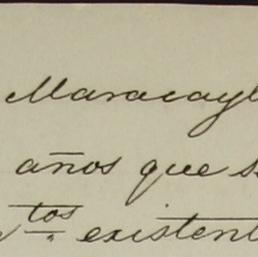 Maracayb
años que s
tos existent